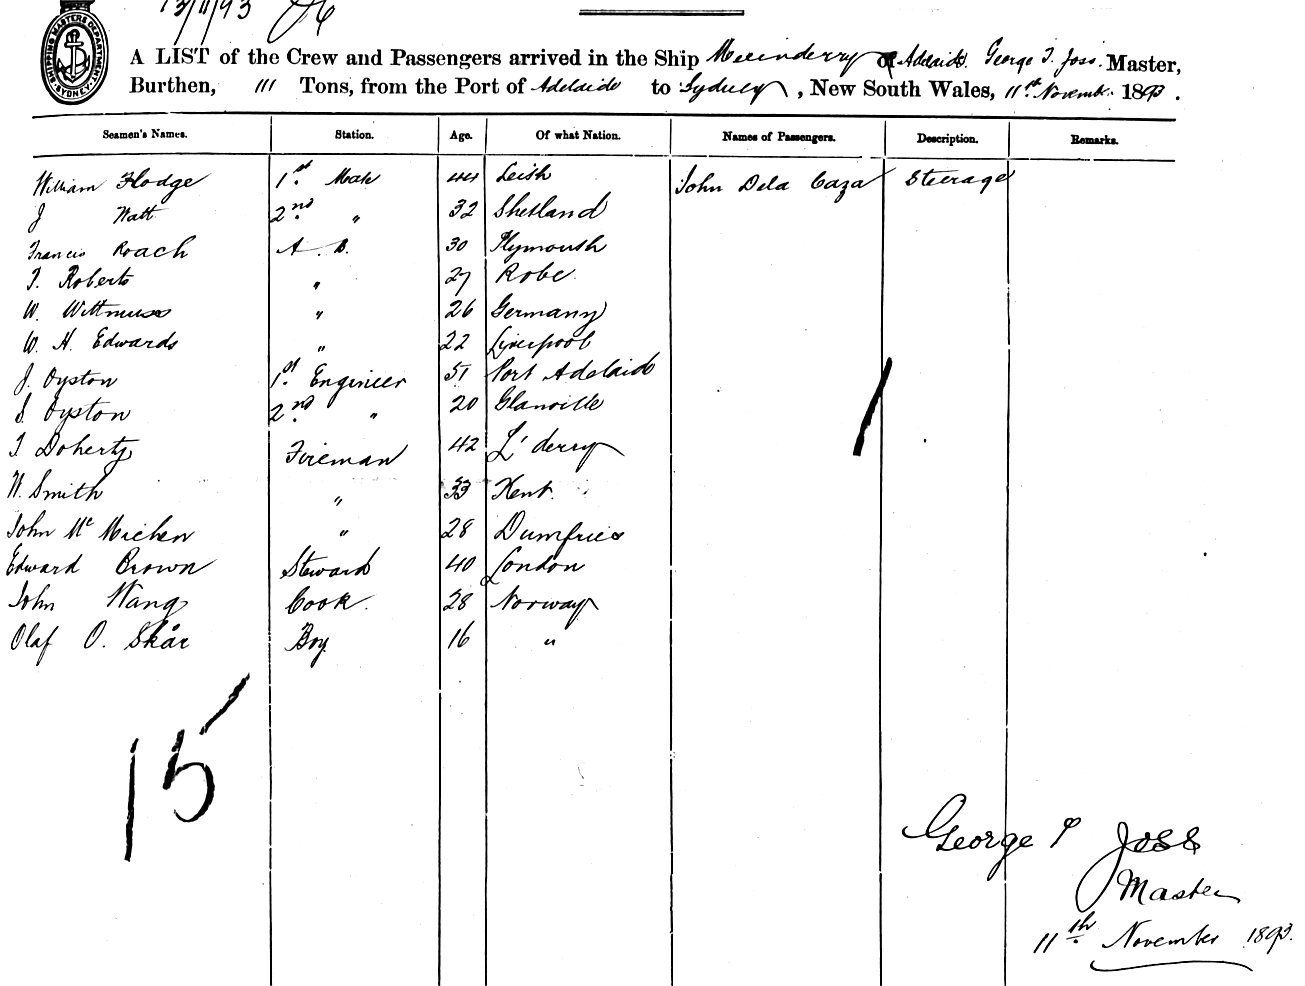 13/11/93
SHIPPING MASTERS DEPARTMENT SYDNEY
A LIST of the Crew and Passengers arrived in the Ship of Adelaide George T. Joss. Master,
Burthen, 111 Tons, from the Port of Adelaide to Sydney, New South Wales, 11th November 1893.
Seamen's Names. Station. Age. Of what Nation. Names of Passengers. Description. Remarks.
William Hodge 1st Mate 44 Leith John Dela Caza Steerage
J Watt 2nd " 32 Shetland
Francis Roach A.B. 30 Plymouth
T. Roberts " 27 Robe
W. " 26 Germany
W. H. Edwards " 22 Liverpool
J. Oyston 1st Engineer 51 Port Adelaide
S. Oyston 2nd " 20 Glanville
T Doherty Fireman 42 L'derry
W. Smith " 33 Kent.
John Mc " 28 Dumfries
Edward Brown Steward 40 London
John Wang Cook. 28 Norway
Olaf O. Skår Boy 16 "
15
George T Joss
Master
11th November 1893.